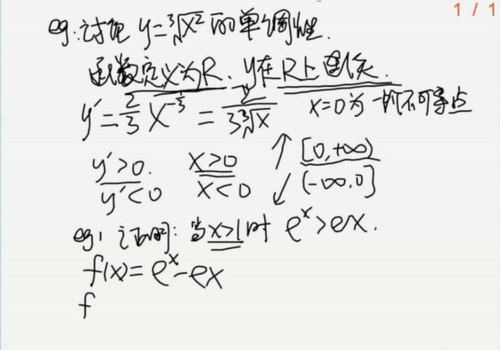 1 / 1
eg: 讨论 y=∛x² 的单调性.
函数定义为R. y在R上连续.
y'=2/3 x^(-1/3) = 2/(3∛x) x=0为一个不可导点
y'>0 x>0 ↑ [0,+∞)
y'<0 x<0 ↙ (-∞,0]
eg: 证明: 当x>1时 e^x>ex.
f(x)=e^x-ex
f